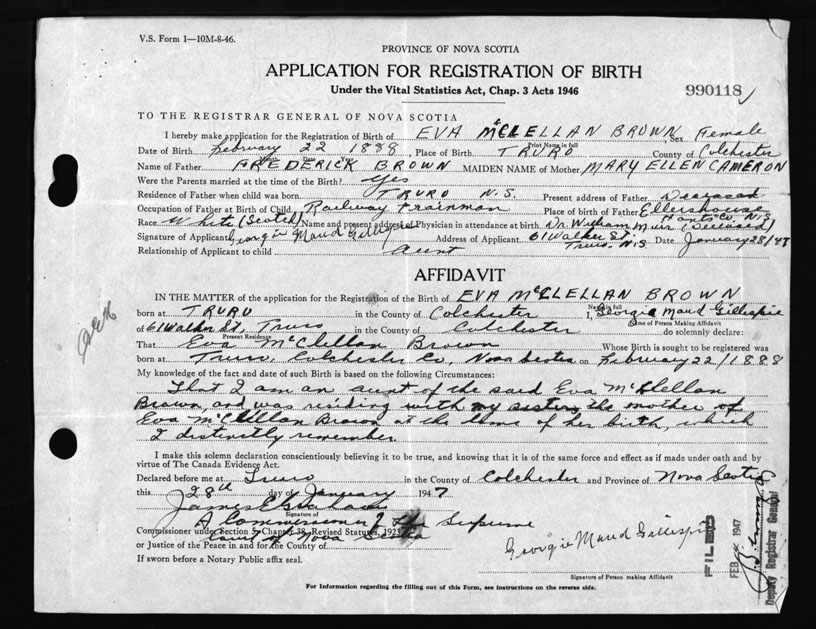 V.S. Form 1—10M-8-46.
PROVINCE OF NOVA SCOTIA
APPLICATION FOR REGISTRATION OF BIRTH
Under the Vital Statistics Act, Chap. 3 Acts 1946
990118
TO THE REGISTRAR GENERAL OF NOVA SCOTIA
I hereby make application for the Registration of Birth of EVA McCLELLAN BROWN Sex Female
Print Name in full
Date of Birth February 22 1888, Place of Birth TRURO County of Colchester
Name of Father FREDERICK BROWN MAIDEN NAME of Mother MARY ELLEN CAMERON
Were the Parents married at the time of the Birth? Yes
Residence of Father when child was born TRURO N.S. Present address of Father Deceased
Occupation of Father at Birth of Child Railway Trainman Place of birth of Father Ellershouse Hants Co. N.S.
Race White (Scotch) Name and present address of Physician in attendance at birth Dr. William Muir (Deceased)
Signature of Applicant Georgie Maud Gillespie Address of Applicant 61 Walker St. Truro, N.S. Date January 28/47
Relationship of Applicant to child Aunt
AFFIDAVIT
IN THE MATTER of the application for the Registration of the Birth of EVA McCLELLAN BROWN
Name in full
born at TRURO in the County of Colchester I, Georgie Maud Gillespie
Name of Person Making Affidavit
of 61 Walker St, Truro in the County of Colchester do solemnly declare:
Present Residence
That Eva McClellan Brown Whose Birth is sought to be registered was
born at Truro, Colchester Co, Nova Scotia on February 22/1888
My knowledge of the fact and date of such Birth is based on the following Circumstances:
That I am an aunt of the said Eva McClellan
Brown, and was residing with my sister, the mother of
Eva McClellan Brown at the time of her birth, which
I distinctly remember
I make this solemn declaration conscientiously believing it to be true, and knowing that it is of the same force and effect as if made under oath and by
virtue of The Canada Evidence Act.
Declared before me at Truro in the County of Colchester and Province of Nova Scotia
this 28th day of January 1947
James
Signature of
A Commissioner of the Supreme
Commissioner under Section 5, Chapter 38, Revised Statutes, 1923
Court of Nova Scotia
or Justice of the Peace in and for the County of
If sworn before a Notary Public affix seal.
Georgie Maud Gillespie
Signature of Person making Affidavit
FILED
FEB 1947
Deputy Registrar General
For Information regarding the filling out of this Form, see instructions on the reverse side.